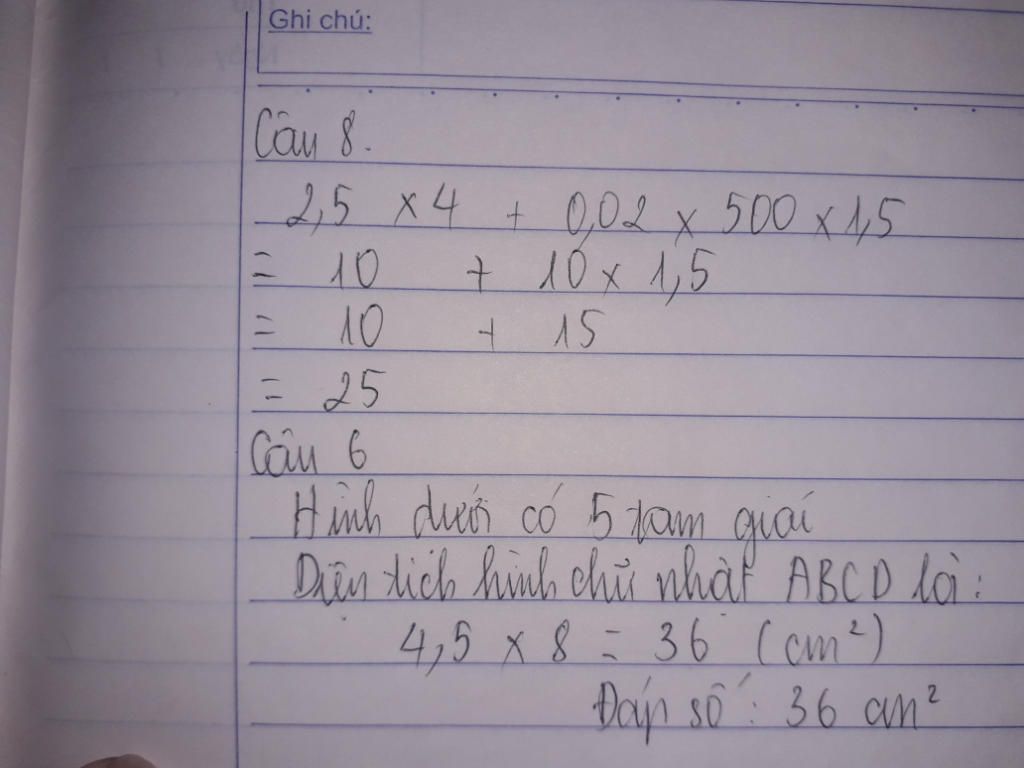 Ghi chú:
Câu 8.
2,5 x 4 + 0,02 x 500 x 1,5
= 10 + 10 x 1,5
= 10 + 15
= 25
Câu 6
Hình dưới có 5 tam giái
Diện tích hình chữ nhật ABCD là:
4,5 x 8 = 36 (cm²)
Đáp số: 36 cm²